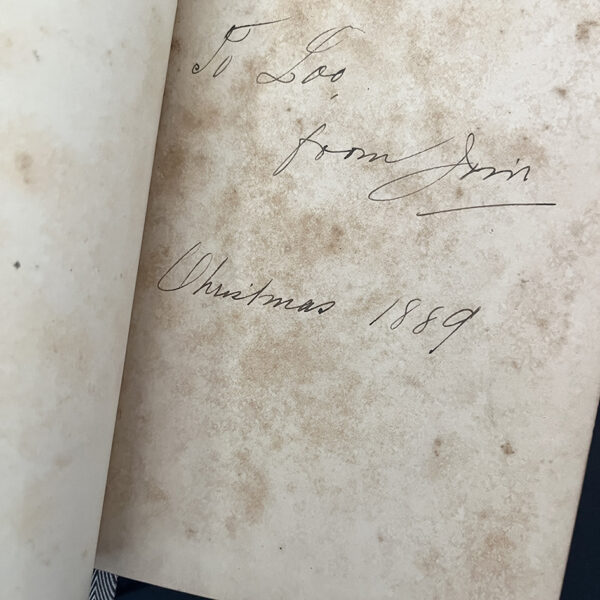 To Loo,
from
Christmas 1889